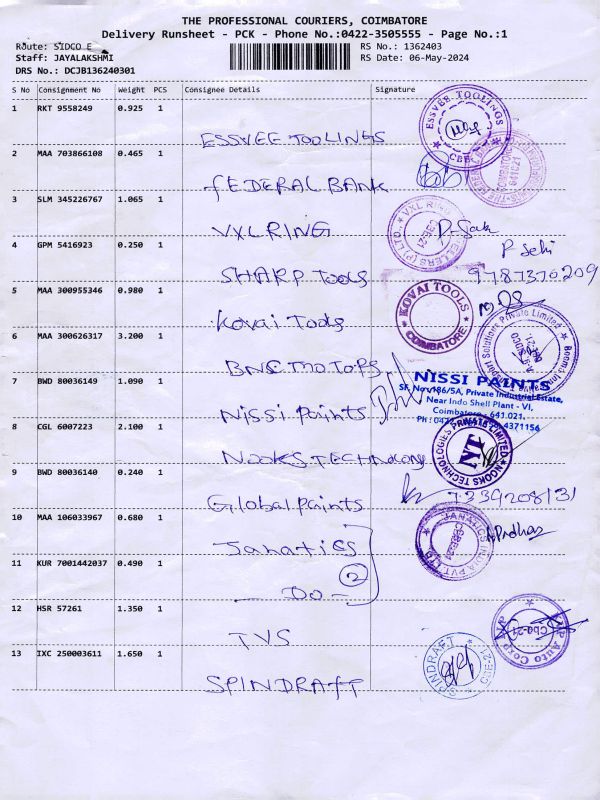 THE PROFESSIONAL COURIERS, COIMBATORE
Delivery Runsheet - PCK - Phone No.:0422-3505555 - Page No.:1
Route: SIDCO E
RS No.: 1362403
Staff: JAYALAKSHMI
RS Date: 06-May-2024
DRS No.: DCJB136240301
S No Consignment No Weight PCS Consignee Details Signature
1 RKT 9558249 0.925 1
ESSVEE TOOLINGS
ESSVEE TOOLINGS
2 MAA 703866108 0.465 1
FEDERAL BANK
3 SLM 345226767 1.065 1
VXL RING
4 GPM 5416923 0.250 1
P Selvi
SHARP Tools 9787370209
5 MAA 300955346 0.980 1
Kovai Tools
KOVAI TOOLS
COIMBATORE
6 MAA 300626317 3.200 1
BNC MOTORS
7 BWD 80036149 1.090 1
Nissi Paints
NISSI PAINTS
SF. No. 186/5A, Private Industrial Estate,
Near Indo Shell Plant - VI,
Coimbatore - 641 021.
8 CGL 6007223 2.100 1
NOOKS TECHNOLOGY
NOOKS TECHNOLOGIES PRIVATE LIMITED
NT
9 BWD 80036140 0.240 1
Global Paints
10 MAA 106033967 0.680 1
Janatics
JANATICS INDIA PVT LTD
11 KUR 7001442037 0.490 1
2
- Do -
12 HSR 57261 1.350 1
TVS
13 IXC 250003611 1.650 1
SPINDRAFT
SPINDRAFT CBE-21